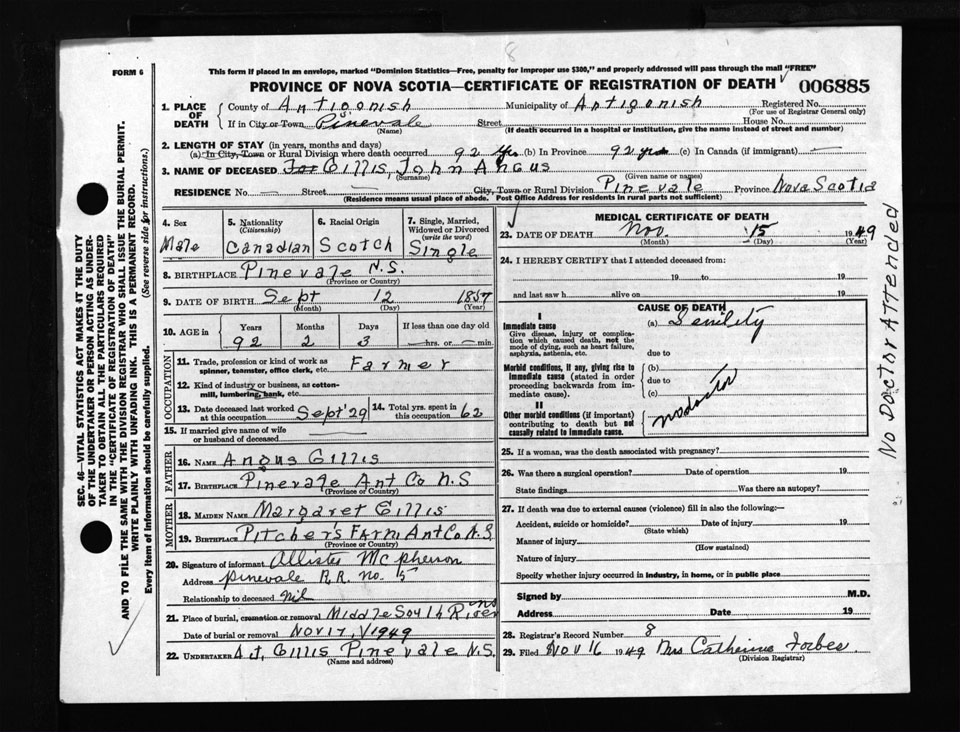 8
FORM 6
This form if placed in an envelope, marked "Dominion Statistics—Free, penalty for improper use $300," and properly addressed will pass through the mail "FREE"
PROVINCE OF NOVA SCOTIA—CERTIFICATE OF REGISTRATION OF DEATH 006885
1. PLACE OF DEATH
County of Antigonish Municipality of Antigonish Registered No.
(For use of Registrar General only)
If in City or Town Pinevale Street House No.
(Name) (If death occurred in a hospital or institution, give the name instead of street and number)
2. LENGTH OF STAY (in years, months and days)
(a) In City, Town or Rural Division where death occurred 92 yrs (b) In Province 92 yrs (c) In Canada (if immigrant) —
3. NAME OF DECEASED Gillis, John Angus
(Surname) (Given name or names)
RESIDENCE No. — Street — City, Town or Rural Division Pinevale Province Nova Scotia
(Residence means usual place of abode. Post Office Address for residents in rural parts not sufficient)
4. Sex Male
5. Nationality (Citizenship) Canadian
6. Racial Origin Scotch
7. Single, Married, Widowed or Divorced (write the word) Single
8. BIRTHPLACE Pinevale N.S.
(Province or Country)
9. DATE OF BIRTH Sept 12 1857
(Month) (Day) (Year)
10. AGE in Years Months Days If less than one day old
92 2 3 — hrs. or — min.
OCCUPATION
11. Trade, profession or kind of work as spinner, teamster, office clerk, etc. Farmer
12. Kind of industry or business, as cotton-mill, lumbering, bank, etc.
13. Date deceased last worked at this occupation Sept '29
14. Total yrs. spent in this occupation 62
15. If married give name of wife or husband of deceased —
FATHER
16. NAME Angus Gillis
17. BIRTHPLACE Pinevale Ant Co N.S
(Province or Country)
MOTHER
18. MAIDEN NAME Margaret Gillis
19. BIRTHPLACE Pitcher's Farm Ant Co N.S
(Province or Country)
20. Signature of informant Allister McPherson
Address Pinevale R.R. No. 5
Relationship to deceased Nil
21. Place of burial, cremation or removal Middle South River NS
Date of burial or removal Nov 17, 1949
22. UNDERTAKER Gillis Pinevale N.S.
(Name and address)
MEDICAL CERTIFICATE OF DEATH
23. DATE OF DEATH Nov. 15 1949
(Month) (Day) (Year)
24. I HEREBY CERTIFY that I attended deceased from:
19 to 19
and last saw h alive on 19
CAUSE OF DEATH
I
Immediate cause
Give disease, injury or complication which caused death, not the mode of dying, such as heart failure, asphyxia, asthenia, etc.
(a) Senility
due to
Morbid conditions, if any, giving rise to immediate cause (stated in order proceeding backwards from immediate cause).
(b)
due to
(c)
II
Other morbid conditions (if important) contributing to death but not causally related to immediate cause.
no doctor
25. If a woman, was the death associated with pregnancy?
26. Was there a surgical operation? Date of operation 19
State findings Was there an autopsy?
27. If death was due to external causes (violence) fill in also the following:—
Accident, suicide or homicide? Date of injury 19
(State which)
Manner of injury
(How sustained)
Nature of injury
Specify whether injury occurred in industry, in home, or in public place
Signed by M.D.
Address Date 19
28. Registrar's Record Number 8
29. Filed Nov 16 1949 Mrs Catherine Forbes
(Division Registrar)
No Doctor Attended
SEC. 46—VITAL STATISTICS ACT MAKES IT THE DUTY
OF THE UNDERTAKER OR PERSON ACTING AS UNDER-
TAKER TO OBTAIN ALL THE PARTICULARS REQUIRED
IN THE "CERTIFICATE OF REGISTRATION OF DEATH"
AND TO FILE THE SAME WITH THE DIVISION REGISTRAR WHO SHALL ISSUE THE BURIAL PERMIT.
WRITE PLAINLY WITH UNFADING INK. THIS IS A PERMANENT RECORD.
Every item of information should be carefully supplied. (See reverse side for instructions.)